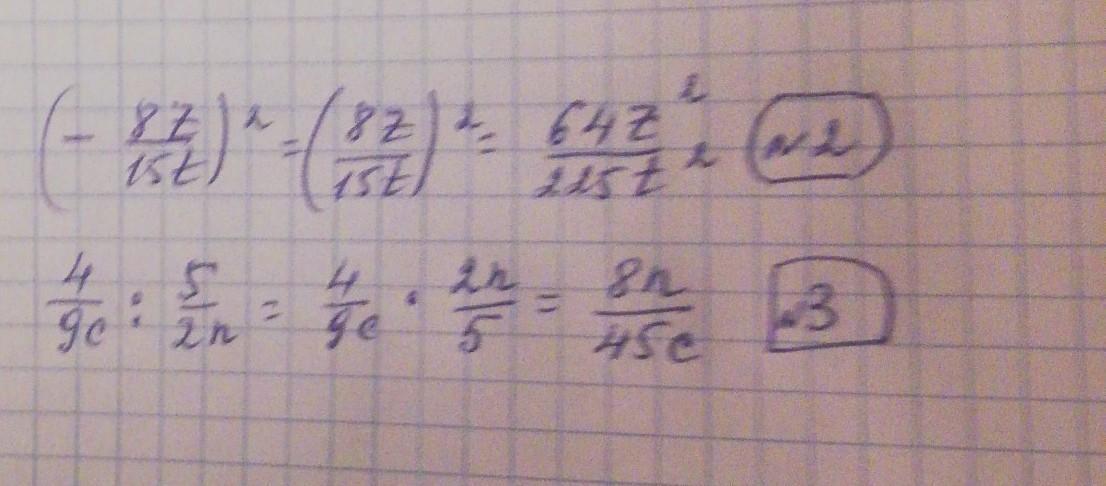 (- 8z/15t)² = (8z/15t)² = 64z²/225t² №2
4/9c : 5/2n = 4/9c · 2n/5 = 8n/45c №3